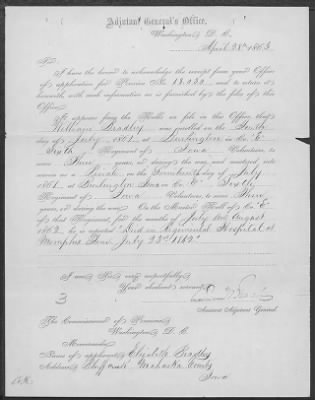 Adjutant General's Office,
Washington, D. C.
April 28th 1863
Sir:
I have the honor to acknowledge the receipt from your Office
of application for Pension No. 18.030, and to return it
herewith, with such information as is furnished by the files of this
Office.
It appears from the Rolls on file in this Office, that
William Bradley was enrolled on the
day of July, 1861, at Burlington in Co. "E",
Sixth Regiment of Iowa Volunteers, to
serve Three years, or during the war, and mustered into
service as a Private on the day of July
1861, at Burlington Iowa in Co. "E", Sixth
Regiment of Iowa Volunteers, to serve Three
years, or during the war. On the Muster Roll of Co. "E"
of that Regiment, for the months of July and August
1862, he is reported "Died in Regimental Hospital at
Memphis Tenn. July 23rd 1862."
I am, Sir, very respectfully,
Your obedient servant,
3
Assistant Adjutant General.
The Commissioner of Pensions,
Washington, D. C.
Memoranda:
Name of applicant, Elizabeth Bradley
Address, Mahaska County
Iowa